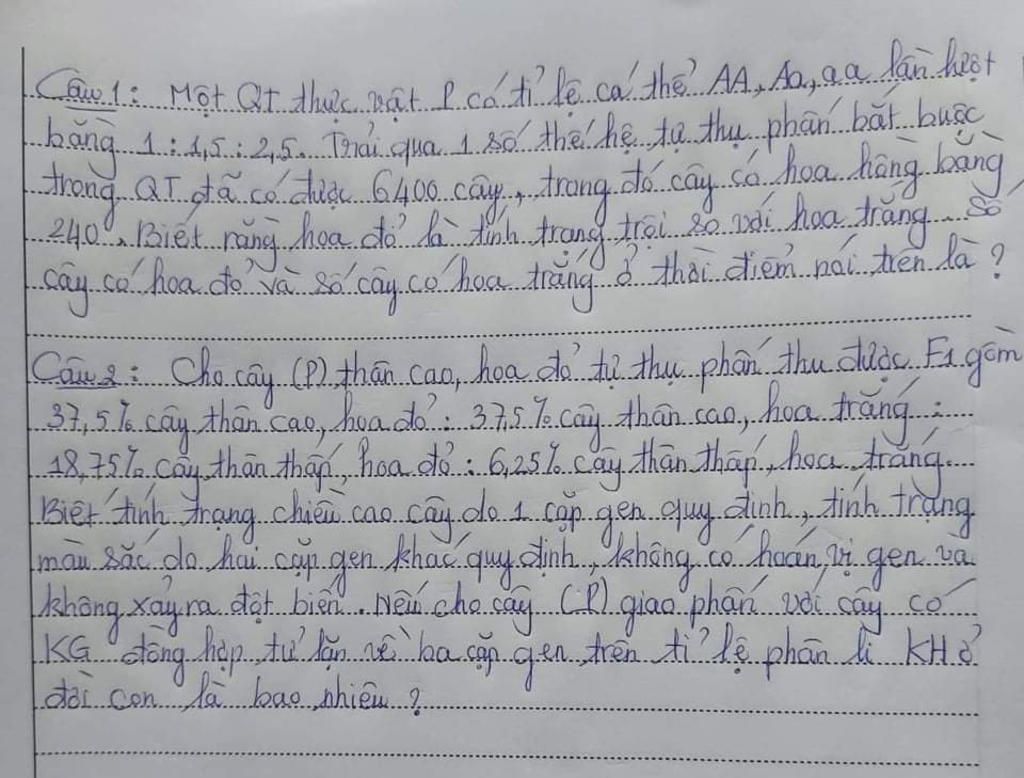 Câu 1: Một QT thực vật P có tỉ lệ cá thể AA, Aa, aa lần lượt
bằng 1 : 1,5 : 2,5. Trải qua 1 số thế hệ tự thụ phấn bắt buộc
trong QT đã có được 6400 cây, trong đó cây có hoa hồng bằng
240. Biết rằng hoa đỏ là tính trạng trội so với hoa trắng. Số
cây có hoa đỏ và số cây có hoa trắng ở thời điểm nói trên là ?
Câu 2: Cho cây (P) thân cao, hoa đỏ tự thụ phấn thu được F1 gồm
37,5% cây thân cao, hoa đỏ : 37,5% cây thân cao, hoa trắng :
18,75% cây thân thấp, hoa đỏ : 6,25% cây thân thấp, hoa trắng.
Biết tính trạng chiều cao cây do 1 cặp gen quy định, tính trạng
màu sắc do hai cặp gen khác quy định, không có hoán vị gen và
không xảy ra đột biến. Nếu cho cây (P) giao phấn với cây có
KG đồng hợp tử lặn về ba cặp gen trên tỉ lệ phân li KH ở
đời con là bao nhiêu ?